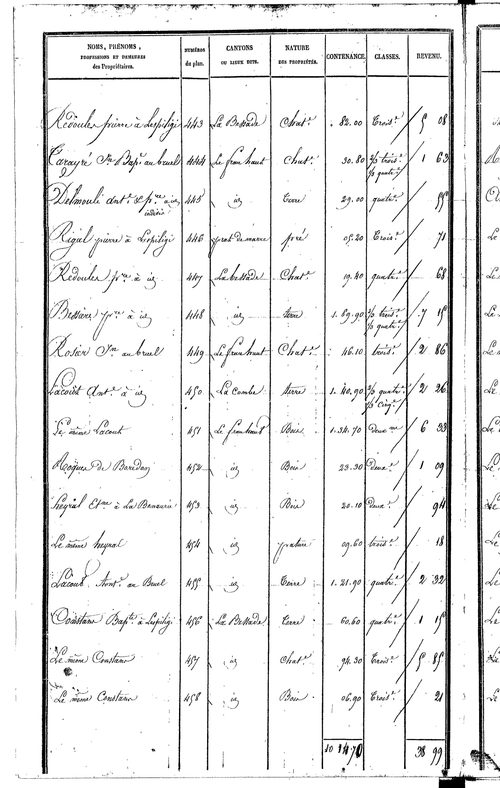 NOMS, PRÉNOMS, PROFESSIONS ET DEMEURES des Propriétaires. | NUMÉROS du plan. | CANTONS OU LIEUX DITS. | NATURE DES PROPRIÉTÉS. | CONTENANCE. | CLASSES. | REVENU.
Rédoules pierre à Lespiligi 443 La Bessade Chat.e 82.00 Trois.e 5 08
Carayré J.n Bap.e au bruel 444 Le fran haut Chat.e 30.80 1/2 trois.e 1/2 quat.e 1 63
Delmouli ant.e & p.re à id indivis 445 id Terre 29.00 quat.e 55
Rigal pierre à Lespiligi 446 prat de marre pré 05.20 Trois.e 71
Rédoules p.re à id 447 La bessade Chat.e 19.40 quat.e 68
Bessière p.re à id 448 id terre 1.89.90 1/2 trois.e 1/2 quat.e 7 15
Rosier J.n au bruel 449 Le fran haut Chat.e 46.10 trois.e 2 86
Lacout Ant.e à id 450 La Combe terre 1.40.90 1/2 quat.e 1/2 cinq.e 2 26
Le même Lacout 451 Le fran haut Bois 1.34.70 Deux.me 6 33
Roques de Boredon 452 id Bois 23.30 Deux.e 1 09
heyral Et.ne à La 453 id Bois 20.10 Deux.e 94
Le même heyral 454 id pature 09.60 trois.e 18
Lacout Ant.e au Bruel 455 id Terre 1.21.90 quat.e 2 32
Constans Bap.te à Lespiligi 456 La Bessade Terre 60.60 quat.e 1 15
Le même Constans 457 id Chat.e 94.30 Trois.e 5 85
Le même Constans 458 id Bois 06.90 Trois.e 21
10 14 70 38 99